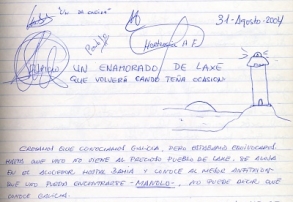 31-Agosto-2004
UN ENAMORADO DE LAXE
QUE VOLVERÁ CANDO TEÑA OCASION
CREIAMOS QUE CONOCIAMOS GALICIA, PERO ESTABAMOS EQUIVOCADOS
HASTA QUE UNO NO VIENE AL PRECIOSO PUEBLO DE LAXE, SE ALOJA
EN EL ACOGEDOR HOSTAL BAHIA Y CONOCE AL MEJOR ANFITRION
QUE UNO PUEDA ENCONTRARSE -MANOLO-, NO PUEDE DECIR QUE
CONOCE GALICIA.